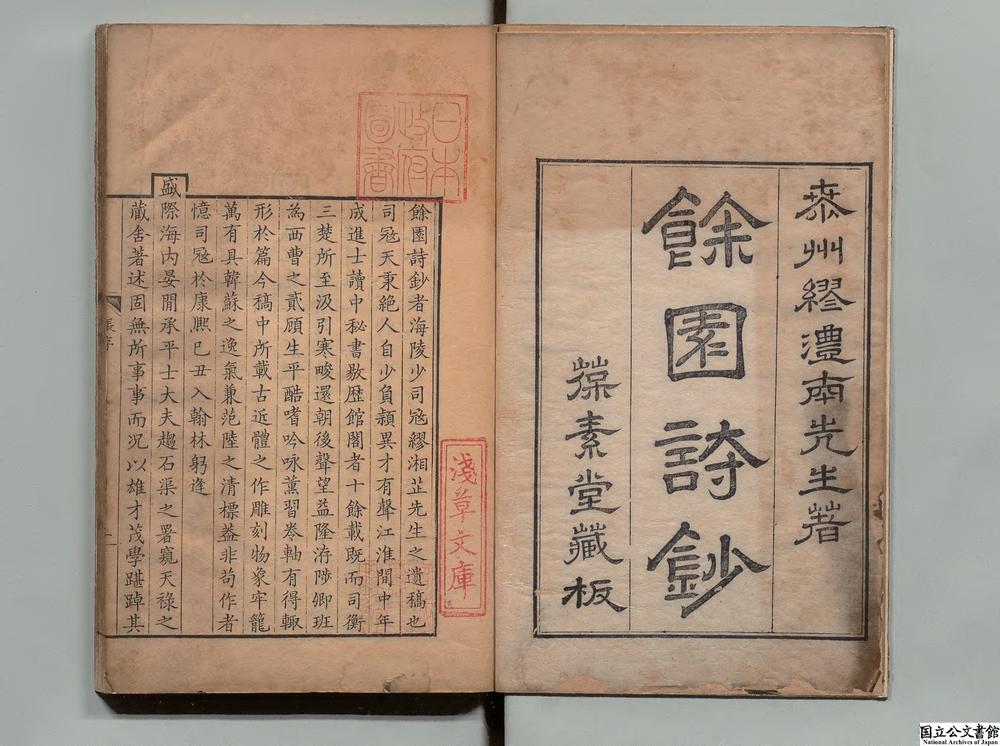 泰州繆澧南先生著
餘園詩鈔
葆素堂藏板
日本
政府
圖書
餘園詩鈔者海陵少司寇繆湘芷先生之遺稿也
司寇天秉絕人自少負穎異才有聲江淮間中年
成進士讀中秘書敭歴館閣者十餘載既而司衡
三楚所至汲引寒畯還朝後聲望益隆洊陟卿班
為西曹之貳顧生平酷嗜吟咏薰習卷軸有得輒
形於篇今稿中所載古近體之作雕刻物象牢籠
萬有具韓蘇之逸氣兼范陸之清標葢非苟作者
憶司寇於康熙己丑入翰林躬逢
盛際海內晏閒承平士大夫趨石渠之署窺天祿之
藏舍著述固無所事事而况以雄才茂學踸踔其
張序
一
淺草文庫
国立公文書館
National Archives of Japan